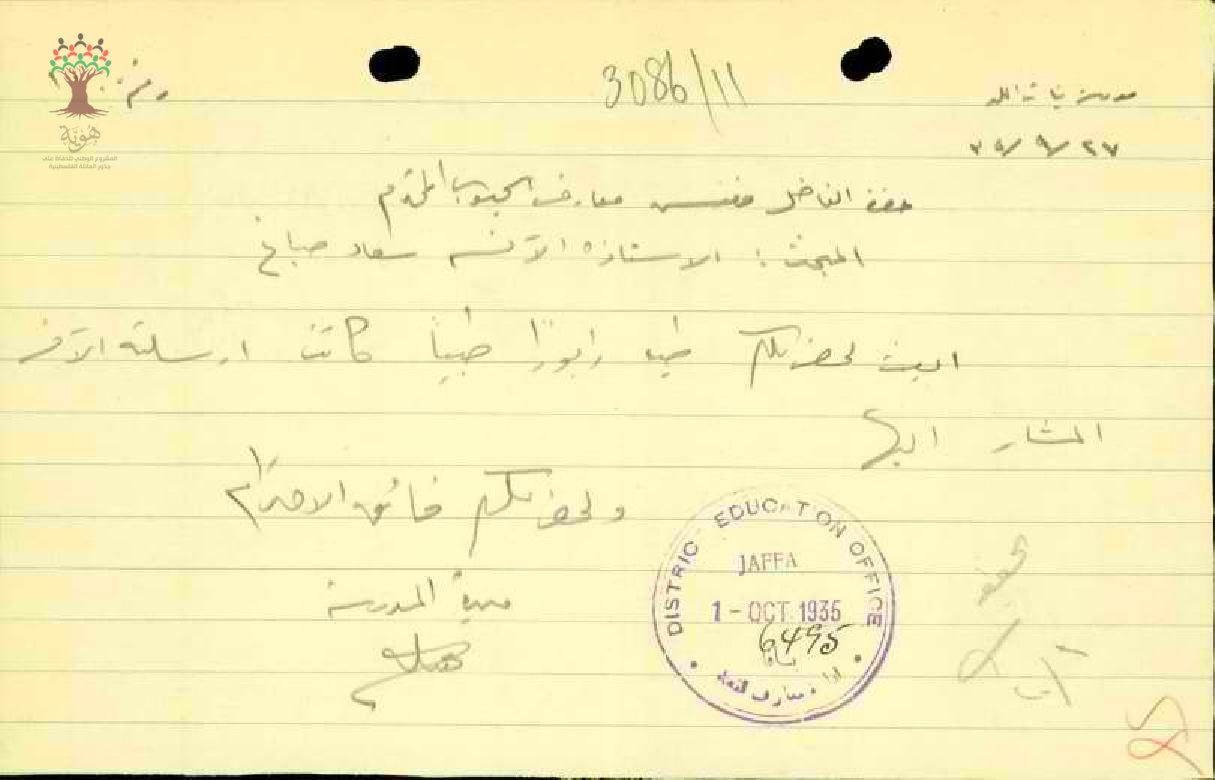 3086/11
مدرسة بنات اللد
٢٧/٩/٣٥
حضرة الفاضل مفتش معارف الجنوب المحترم
المبحث: الاستاذة الآنسة سعاد صباغ
ابعث لحضرتكم طيه رابورًا طبيًا كانت ارسلته الآنسة
المشار اليها
ولحضرتكم فائق الاحترام
مديرة المدرسة
DISTRICT EDUCATION OFFICE
JAFFA
1 - OCT 1935
6495
يافا
هوية
المشروع الوطني للحفاظ على
جذور العائلة الفلسطينية